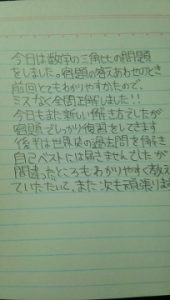 今日は数学の三角比の問題
をしました。宿題の答えあわせのとき
前回とてもわかりやすかたので、
ミスなく全問正解しました!!
今日もまた新しい解き方でしたが
宿題でしっかり復習をしてきます
後半は世界史の過去問を解き
自己ベストには届きませんでしたが
間違ったところもわかりやすく教え
ていただいて、また次も頑張ります